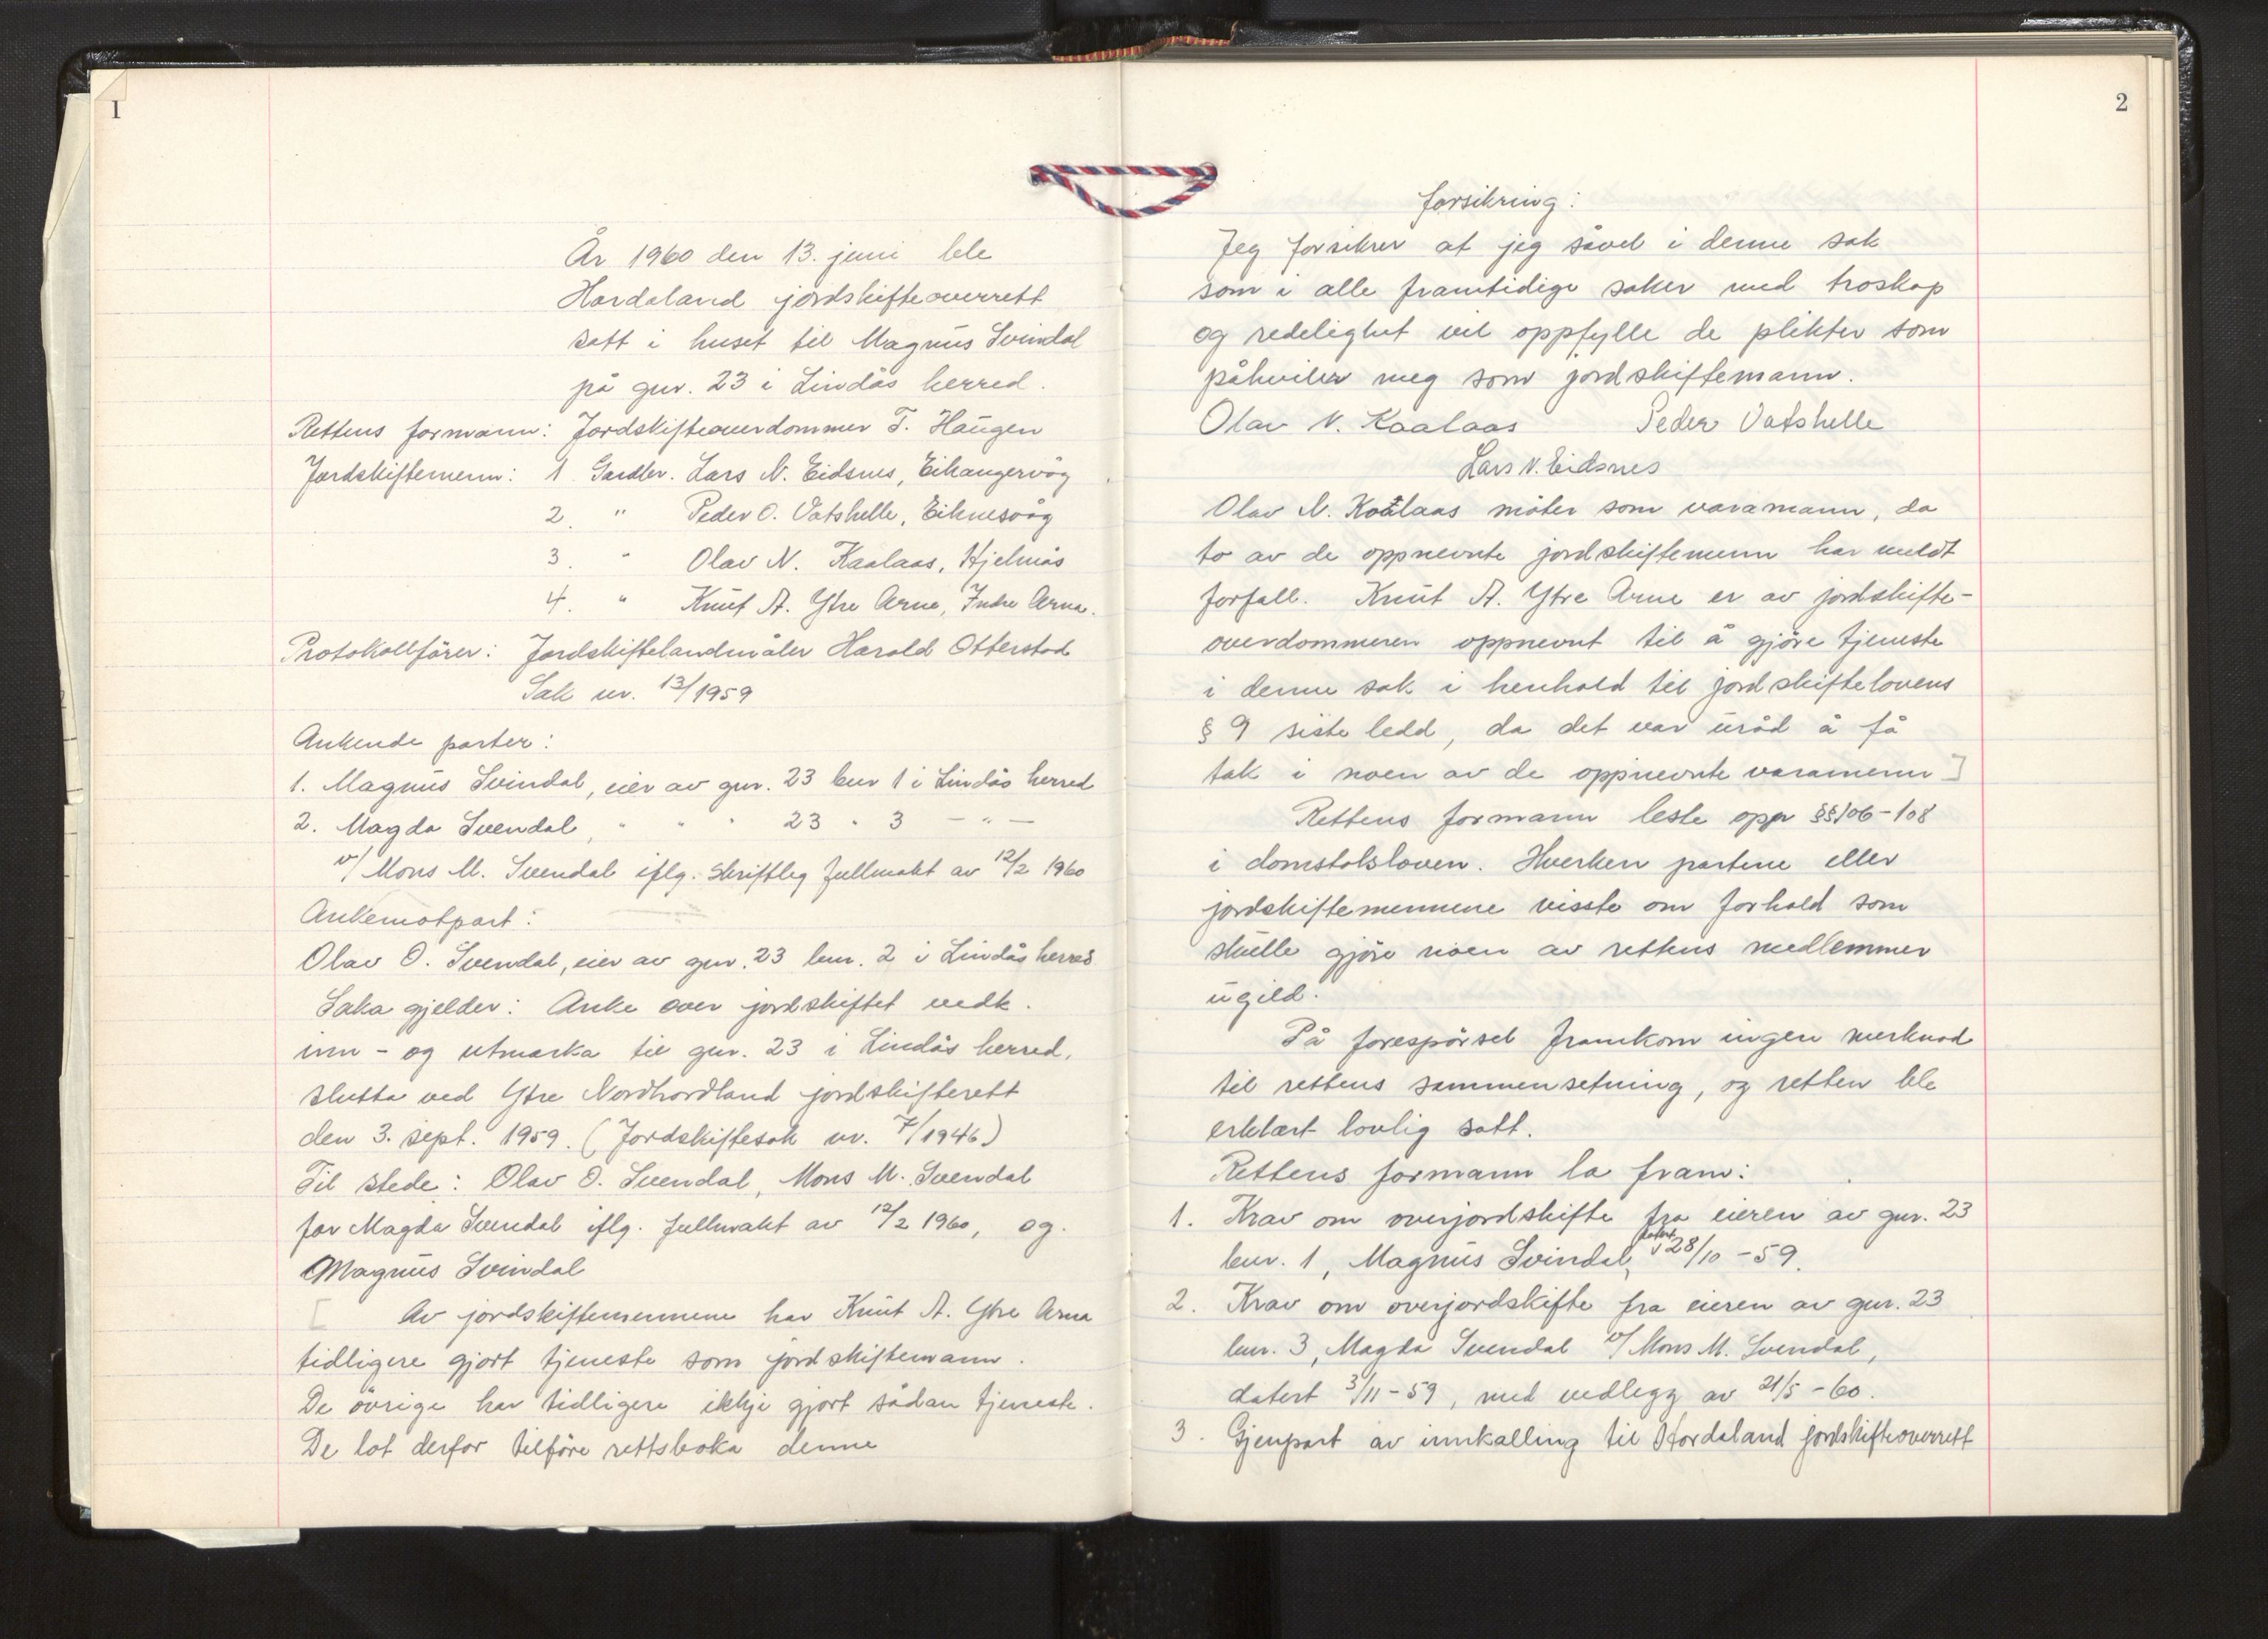 1
År 1960 den 13. juni ble
Hordaland jordskifteoverrett
satt i huset til Magnus Svindal
på gnr. 23 i Lindås herred.
Rettens formann: Jordskifteoverdommer T. Haugen
Jordskiftemenn: 1 Gardbr. Lars N. Eidsnes, Eikangervåg
2. " Peder O. Vatshelle, Eiknesvåg
3. " Olav N. Kaalaas, Hjelmås
4. " Knut A. Ytre Arne, Indre Arna.
Protokollfører: Jordskiftelandmåler Harald Otterstad
Sak nr. 13/1959
Ankende parter:
1. Magnus Svindal, eier av gnr. 23 bnr 1 i Lindås herred
2. Magda Svendal, " " " 23 " 3 - " -
v/ Mons M. Svendal iflg. skriftleg fullmakt av 12/2 1960
Ankemotpart:
Olav O. Svendal, eier av gnr. 23 bnr. 2 i Lindås herred
Saka gjelder: Anke over jordskiftet vedk.
inn- og utmarka til gnr. 23 i Lindås herred,
slutta ved Ytre Nordhordland jordskifterett
den 3. sept. 1959. (Jordskiftesak nr. 7/1946)
Til stede: Olav O. Svendal, Mons M. Svendal
for Magda Svendal iflg. fullmakt av 12/2 1960, og
Magnus Svindal
[ Av jordskiftemennene har Knut A. Ytre Arna
tidligere gjort tjeneste som jordskiftemann.
De øvrige har tidligere ikkje gjort sådan tjeneste.
De lot derfor tilføre rettsboka denne
2
forsikring:
Jeg forsikrer at jeg såvel i denne sak
som i alle framtidige saker med troskap
og redelighet vil oppfylle de plikter som
påhviler meg som jordskiftemann.
Olav N. Kaalaas Peder Vatshelle
Lars N. Eidsnes
Olav N. Kaalaas møter som varamann, da
to av de oppnevnte jordskiftemenn har meldt
forfall. Knut A. Ytre Arne er av jordskifte-
overdommeren oppnevnt til å gjøre tjeneste
i denne sak i henhold til jordskiftelovens
§ 9 siste ledd, da det var uråd å få
tak i noen av de oppnevnte varamenn ]
Rettens formann leste opp §§ 106-108
i domstolsloven. Hverken partene eller
jordskiftemennene visste om forhold som
skulle gjøre noen av rettens medlemmer
ugild.
På forespørsel framkom ingen merknad
til rettens sammensetning, og retten ble
erklært lovlig satt.
Rettens formann la fram:
1. Krav om overjordskifte fra eieren av gnr. 23
bnr. 1, Magnus Svindal, datert 28/10 -59.
2. Krav om overjordskifte fra eieren av gnr. 23
bnr. 3, Magda Svendal v/ Mons M. Svendal,
datert 3/11-59, med vedlegg av 21/5 -60.
3. Gjenpart av innkalling til Hordaland jordskifteoverrett